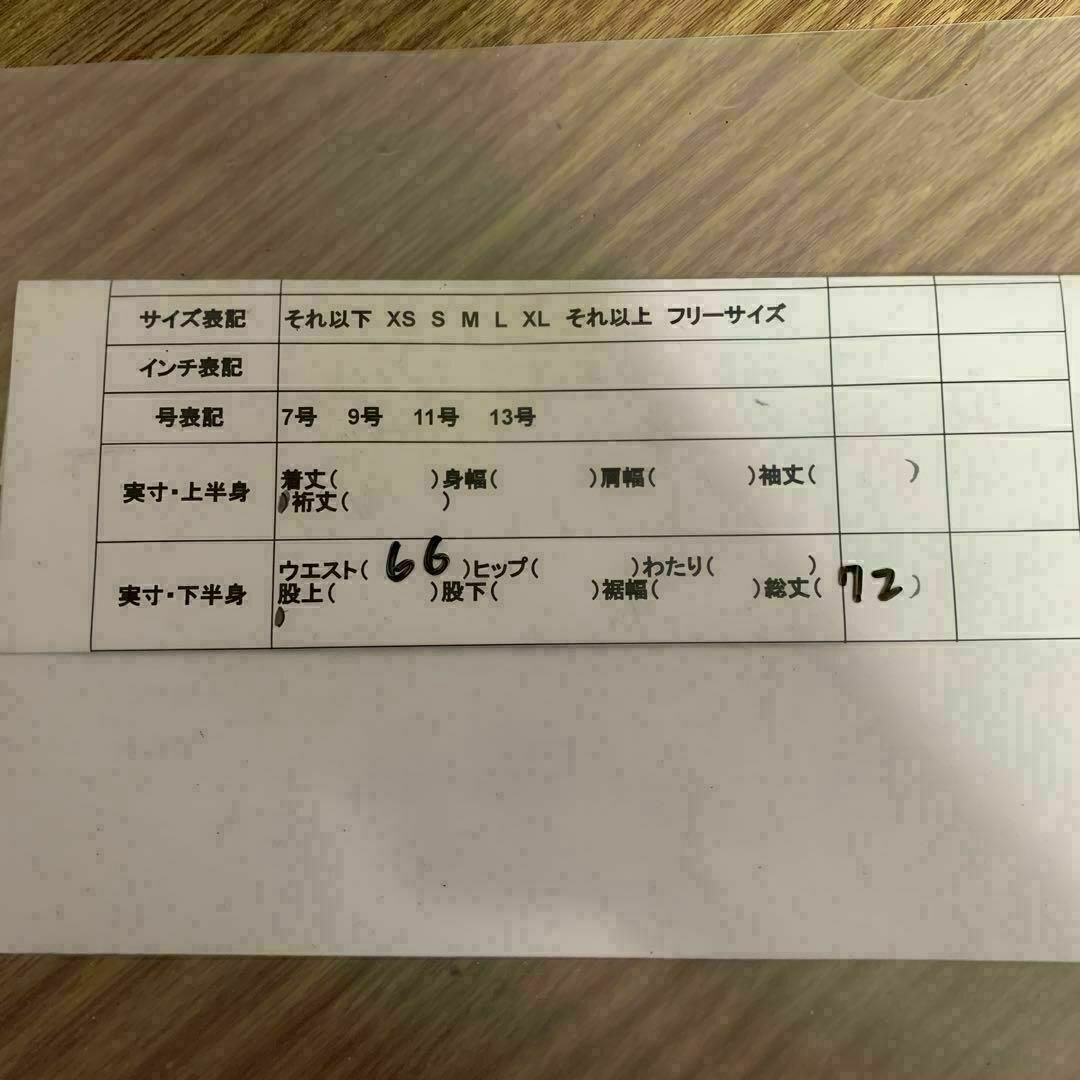 サイズ表記 それ以下 XS S M L XL それ以上 フリーサイズ
インチ表記
号表記 7号 9号 11号 13号
実寸・上半身 着丈( )身幅( )肩幅( )袖丈( )
)裄丈( )
実寸・下半身 ウエスト( 66 )ヒップ( )わたり( )
股上( )股下( )裾幅( )総丈( 72 )
)